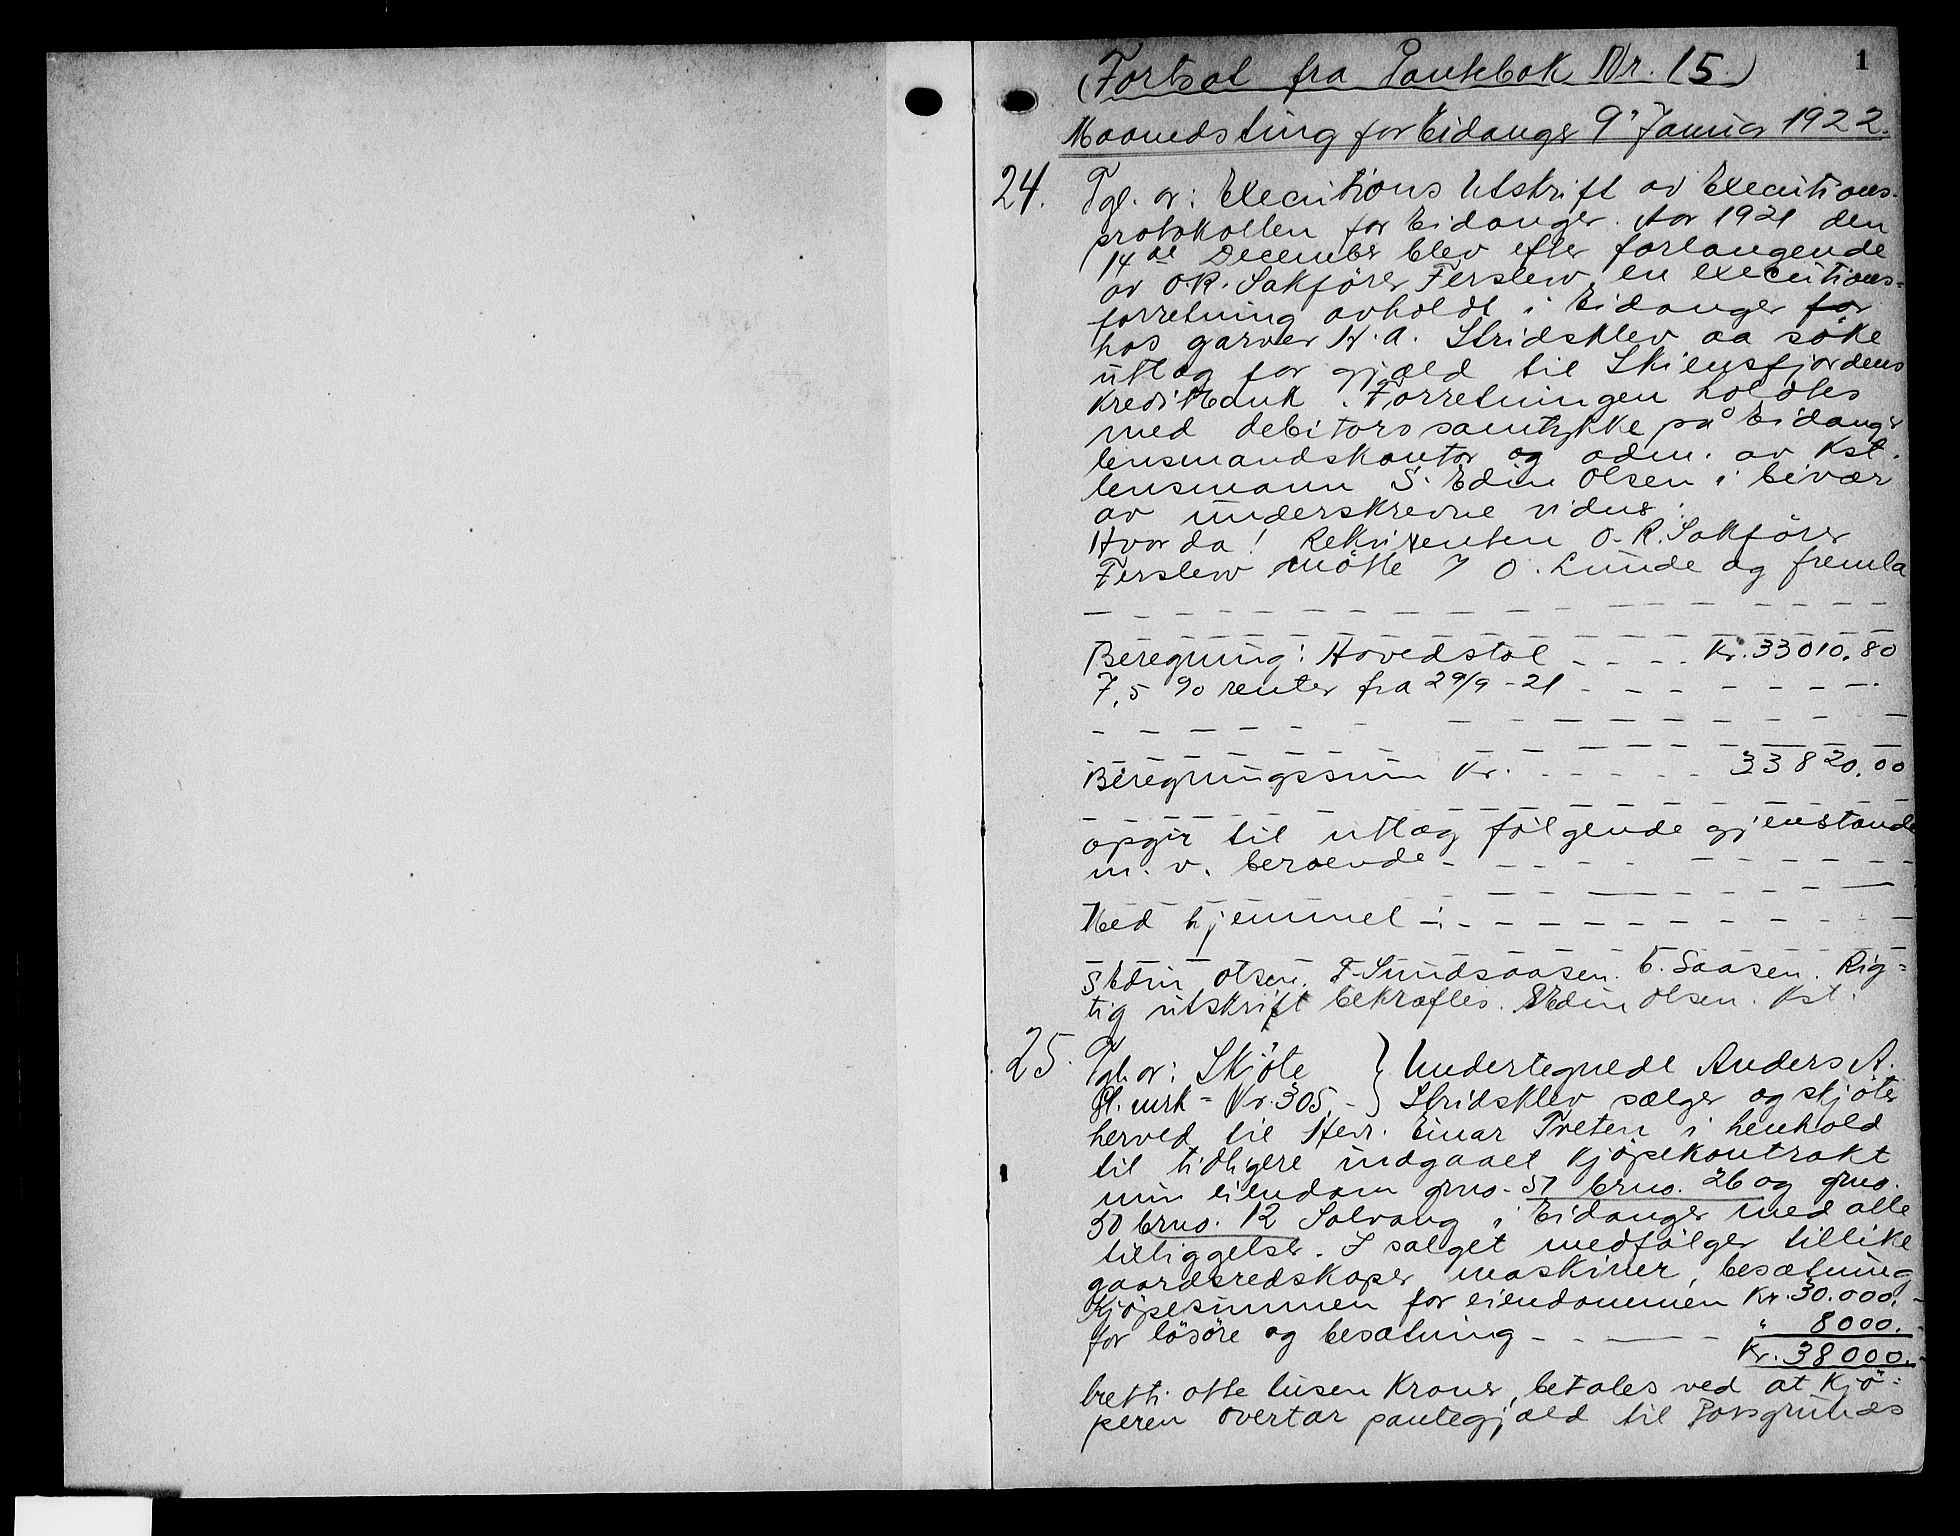 1
(Fortsat fra Pantebok Nr. 15.)
Maanedsting for Eidanger 9' Januar 1922.
24. Tgl. av: Executions Utskrift av Executions-
protokollen for Eidanger. Aar 1921 den
14de December blev efter forlangende
av O.R. Sakförer Ferslew en executions-
forretning avholdt i Eidanger for
hos garver H. A. Stridsklev aa söke
utlæg for gjæld til Skiensfjordens
Kreditbank. Forretningen holdtes
med debitors samtykke på Eidanger
lensmandskontor og adm. av Kst.
lensmann S. Edin Olsen i bivær
av underskrevne vidner:
Hvor da! Rekvirenten O.R. Sakförer
Ferslew mötte v O. Lunde og fremla
Beregning: Hovedstol - - - - Kr. 33010.80
7,5 % renter fra 29/9 - 21 - - - - - - -
Beregningssum Kr. - - - - - 33820.00
opgir til utlæg fölgende gjenstande
m. v. beroende - - - - - - - -
Med hjemmel i - - - - - - - -
S Edin Olsen. F. Sundsaasen. E. Saasen. Rig-
tig utskrift bekræftes. S Edin Olsen. Kst.
25. Tgl. av: Skjöte } Undertegnede Anders A.
St. mrk = Kr. 305.- } Stridsklev sælger og skjöter
herved til Herr. Einar Treten i henhold
til tidligere indgaaet kjöpekontrakt
min eiendom gno. 51 brno. 26 og gno.
50 brno. 12 Solvang i Eidanger med alle
tilliggelser. I salget medfölger tillike
gaardsredskaper, maskiner, besætning
Kjöpesummen for eiendommen Kr. 30.000.-
for lösöre og besætning - - - - " 8000.-
Kr. 38000.-
tretti otte tusen Kroner, betales ved at Kjö-
peren overtar pantegjæld til Porsgrunds